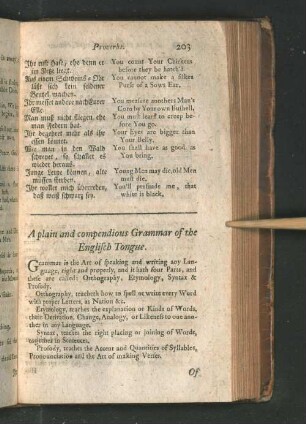 Proverbs. 203
Ihr
You count your Chickens
before they be hatch'd.
Aus einem Schweins-Ohr
You cannot make a silken
läßt sich kein seidener
Purse of a Sows Ear.
Beutel machen.
Ihr messet andere nach Eurer
You measure another Man's
Elle.
Corn by Your own Bushell.
Man muß nicht fliegen, ehe
You must learn to creep be-
man Federn hat.
fore You go.
Ihr begehret mehr als ihr
Your Eyes are bigger than
essen könnet.
Your Belly.
Wie man in den Wald
You shall have as good as
schreyet, so schallet es
You bring.
wieder heraus.
Junge Leute können, alte
Young Men may die, old Men
müssen sterben.
must die.
Ihr wollet mich überreden,
You'll persuade me, that
daß weiß schwarz sey.
white is black.
A plain and compendious Grammar of the
Englisch Tongue.
Grammar is the Art of speaking and writing any Lan-
guage, right and properly, and it hath four Parts, and
these are called: Orthography, Etymology, Syntax &
Prosody.
Orthography, teacheth how to spell or write every Word
with proper Letters, as Nation &c.
Etymology, teaches the explanation or Kinds of Words,
their Derivation, Change, Analogy, or Likeness to one ano-
ther in any Language.
Syntax, teaches the right placing or joining of Words,
together in Sentences.
Prosody, teaches the Accent and Quantities of Syllables,
Pronounciation and the Art of making Verses.
Of